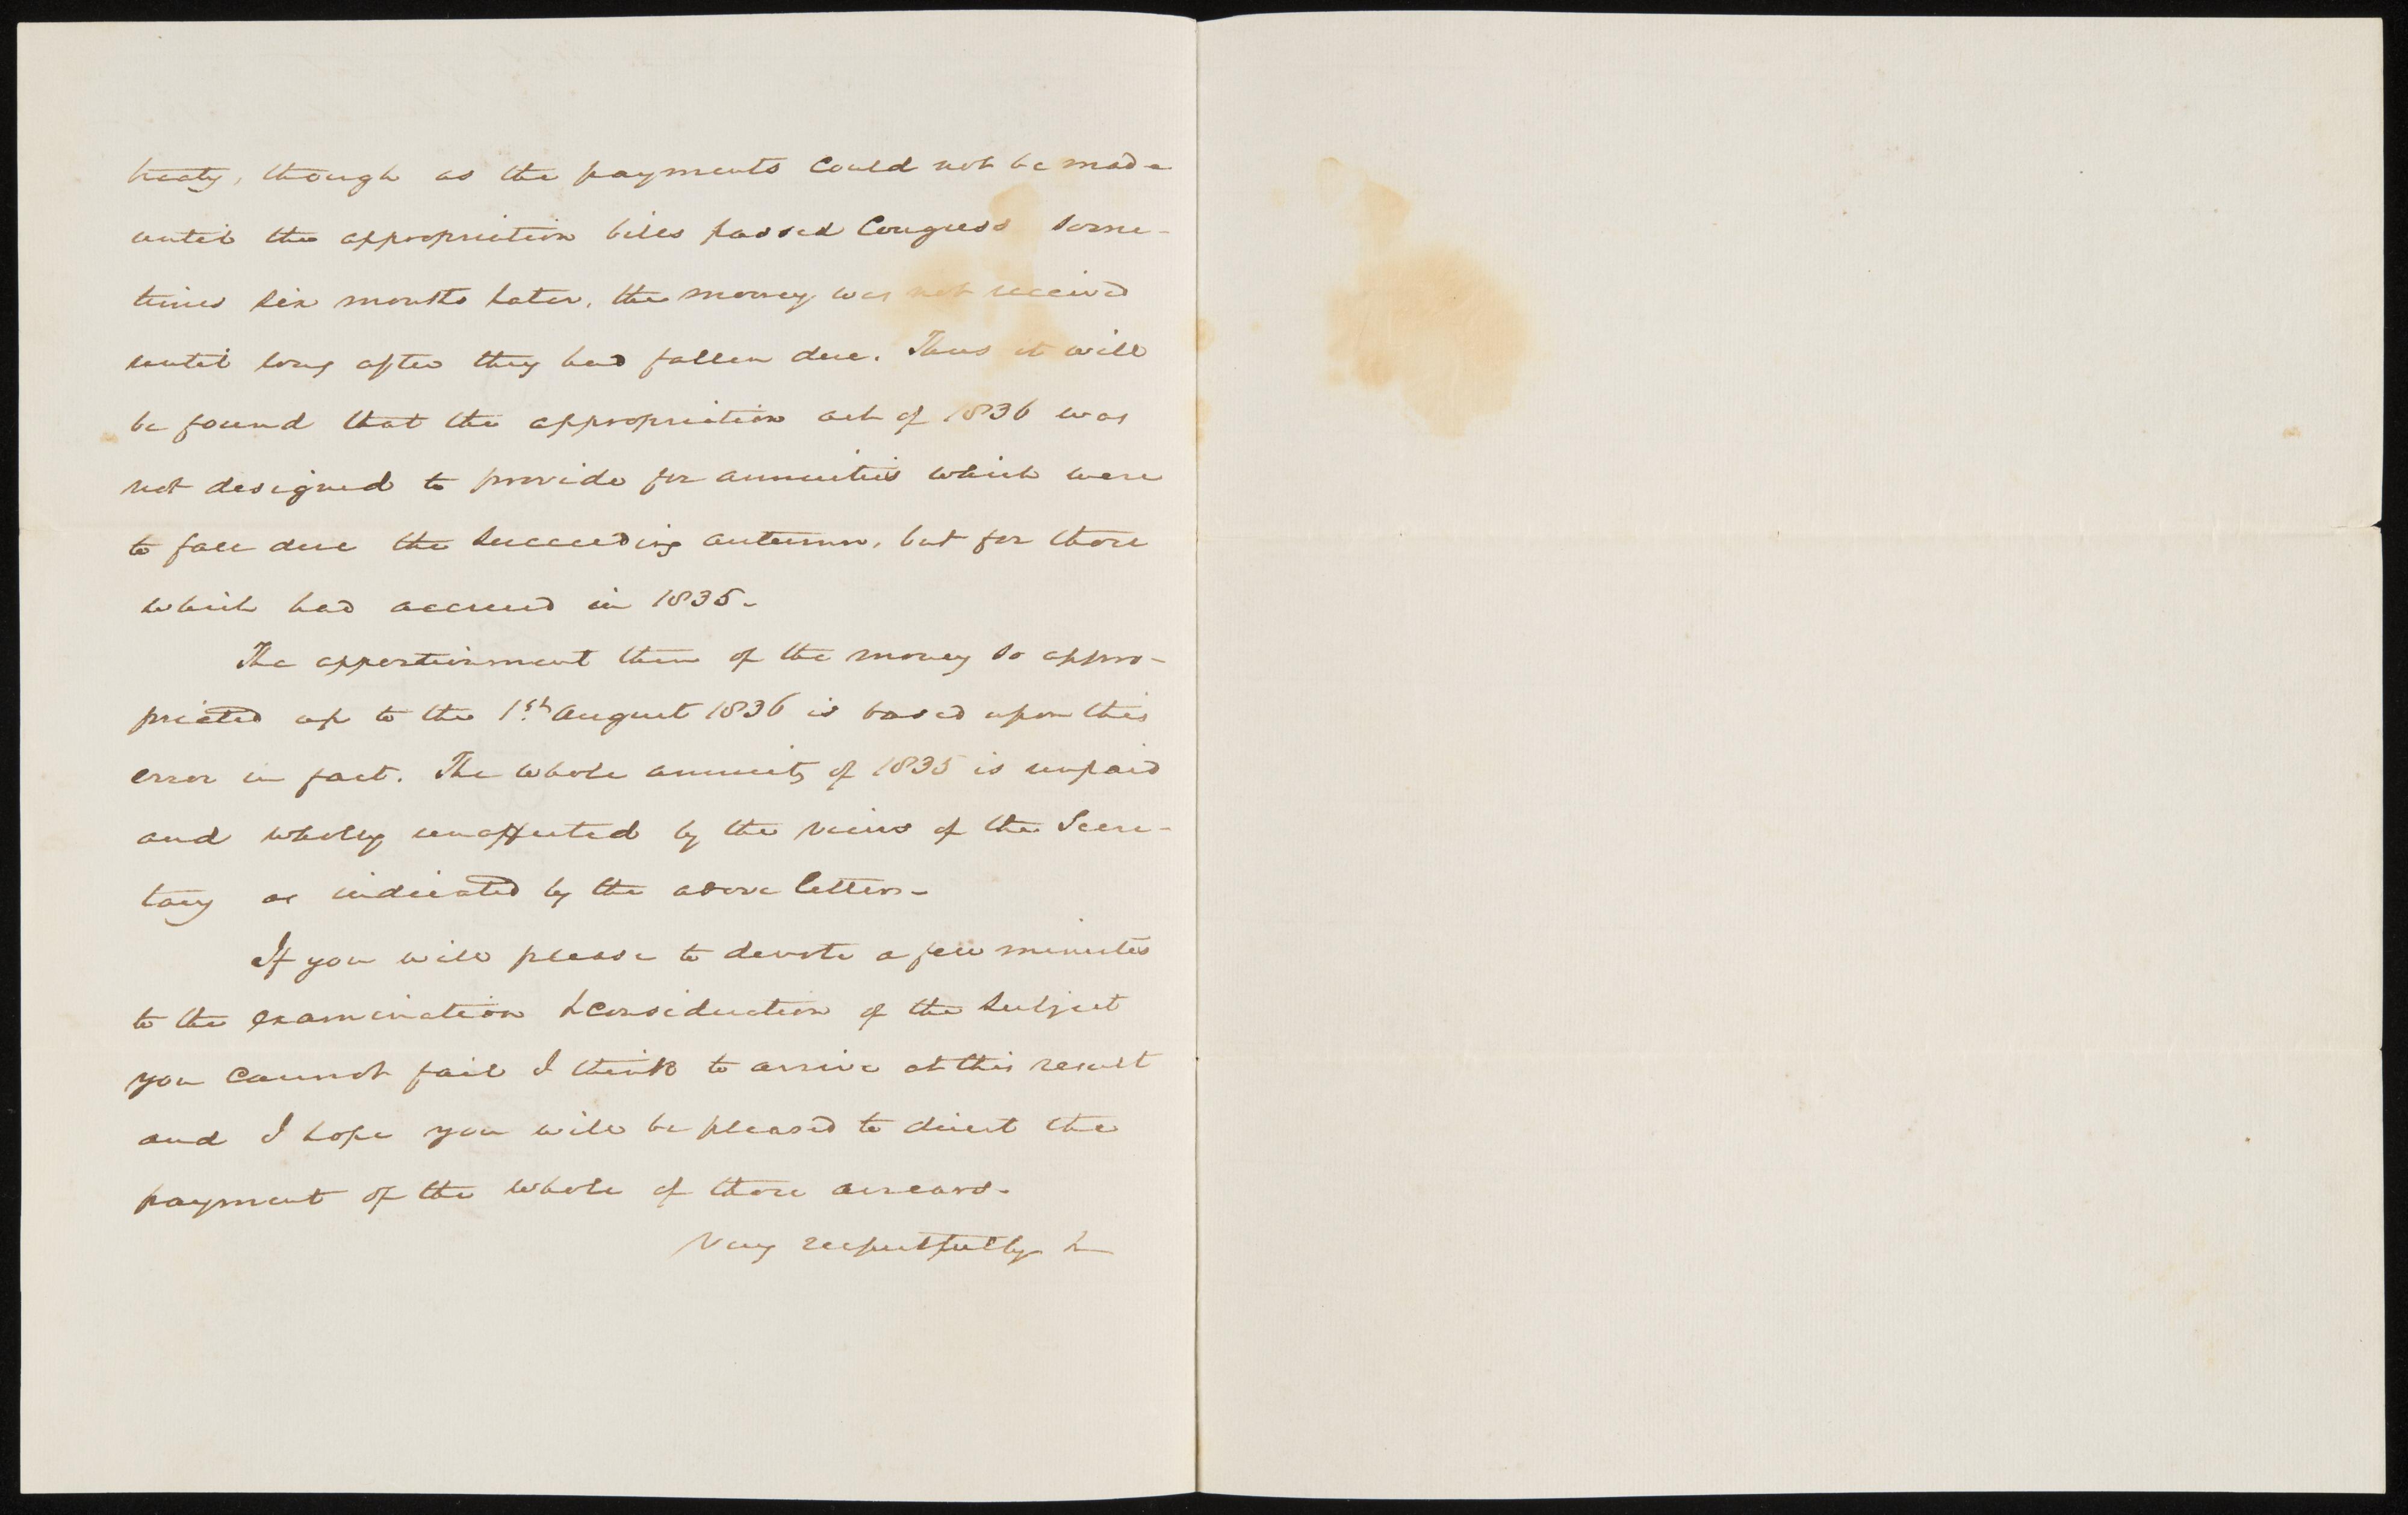 treaty, though as the payments could not be made
until the appropriation bills passed Congress some-
times six months later, the money was not received
until long after they had fallen due. Thus it will
be found that the appropriation act of 1836 was
not designed to provide for annuities which were
to fall due the succeeding autumn, but for those
which had accrued in 1835.
The apportionment then of the money so appro-
priated up to the 1st August 1836 is based upon this
error in fact. The whole annuity of 1835 is unpaid
and wholly unaffected by the views of the Secre-
tary as indicated by the above letter.
If you will please to devote a few minutes
to the examination & consideration of the subject
you cannot fail I think to arrive at this result
and I hope you will be pleased to direct the
payment of the whole of those arrears.
Very respectfully &